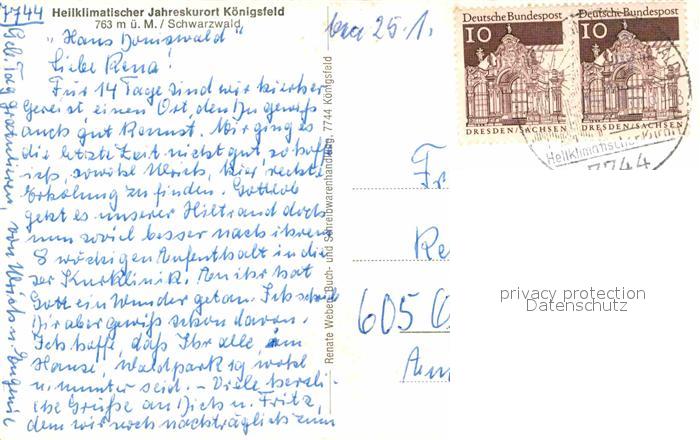 7744
Heilklimatischer Jahreskurort Königsfeld
763 m ü. M. / Schwarzwald
"Haus Domswald"
bis 25.1.
Liebe Rena!
Für 14 Tage sind wir hierher
gereist, einen Ort, den Du gewiß
auch gut kennst. Mir ging es
die letzte Zeit nicht gut, so hoffe
ich, sowie Ulrich, hier rechte
Erholung zu finden. Gottlob
geht es unserer Hiltraud doch
nun soviel besser nach ihrem
8 wöchigen Aufenthalt in die
ser Kurklinik. An ihr hat
Gott ein Wunder getan. Ich schrieb
Dir aber gewiß schon davon.
Ich hoffe, daß Ihr alle im
Hause, Waldpark 19, wohl
u. munter seid. – Viele herzli
che Grüße an Dich u. Fritz,
dem wir noch nachträglich zum
Geb. Tag gratulieren, von Ulrich u. Eugenie
Renate Weber, Buch- und Schreibwarenhandlung, 7744 Königsfeld
Deutsche Bundespost
10
DRESDEN/SACHSEN
Deutsche Bundespost
10
DRESDEN/SACHSEN
Heilklimatischer
7744
Fr
Re
605 O
privacy protection
Datenschutz